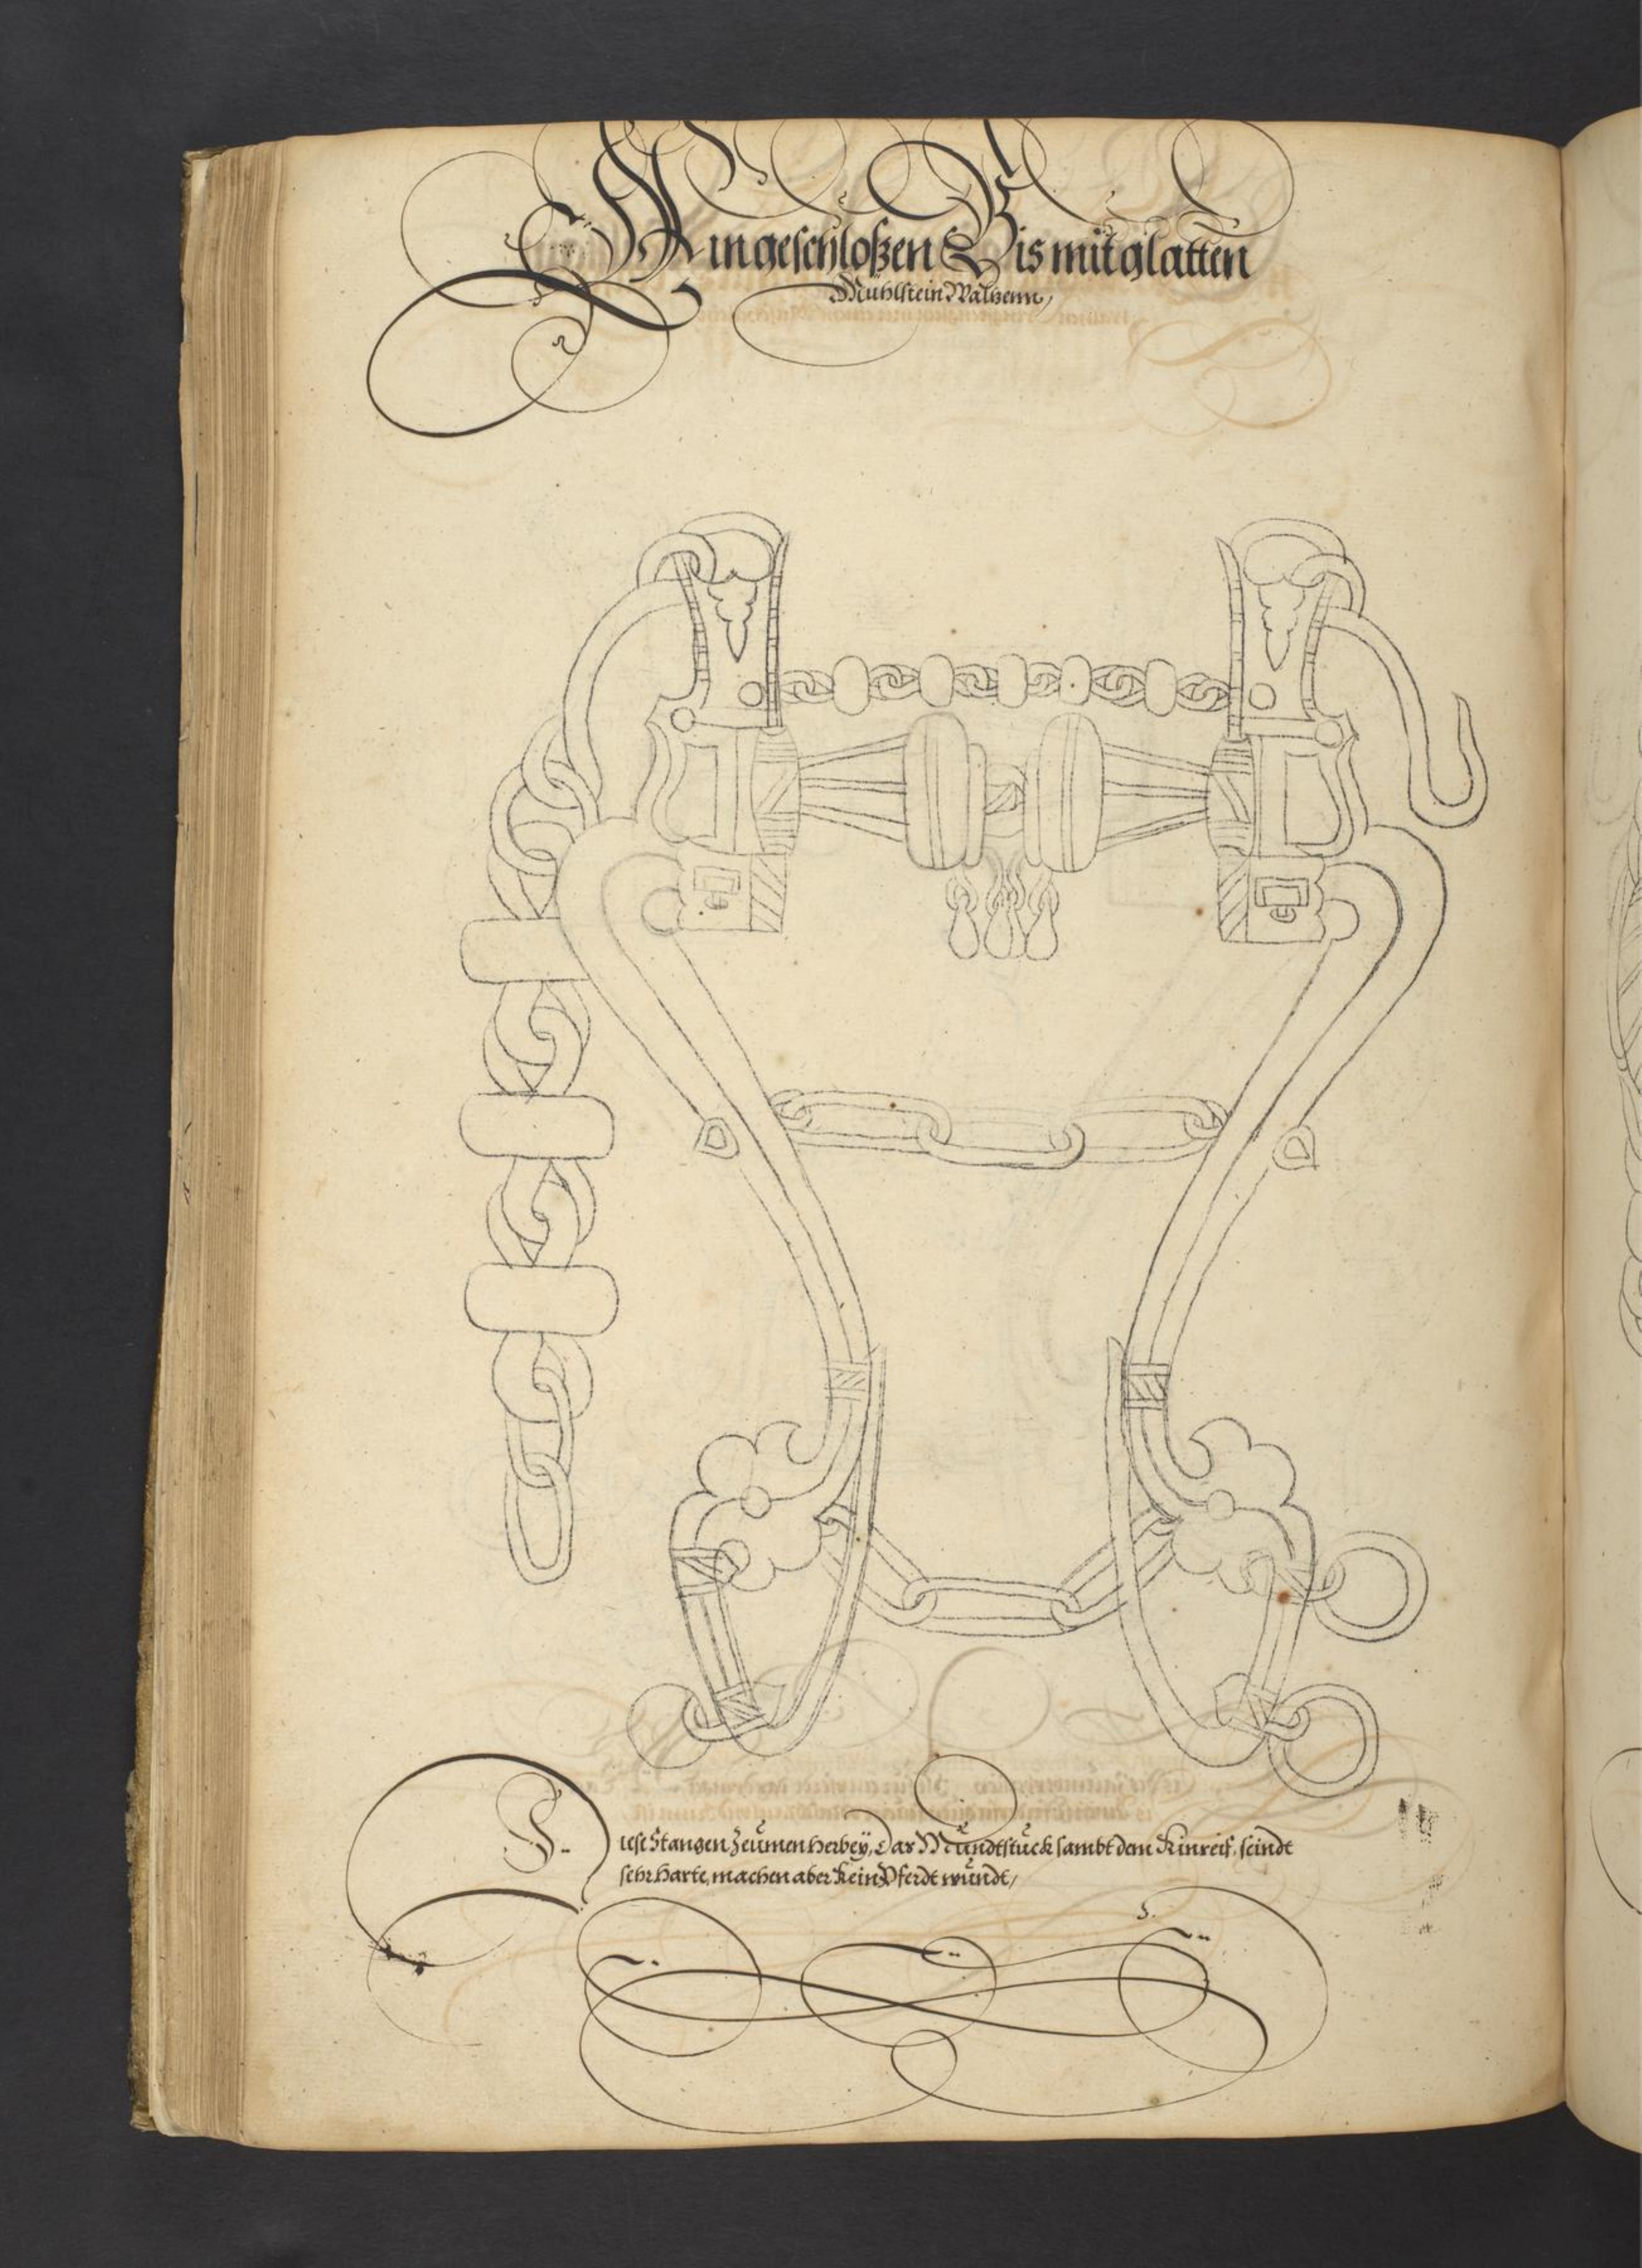 Ain geschloßen Bis mit glatten
Mühlstein Walzenn,
Diese Stangen Zeümen herbeÿ, Das Mündtstück sambt dem Kinreif, seindt
sehr harte, machen aber kein Pferdt wündt,